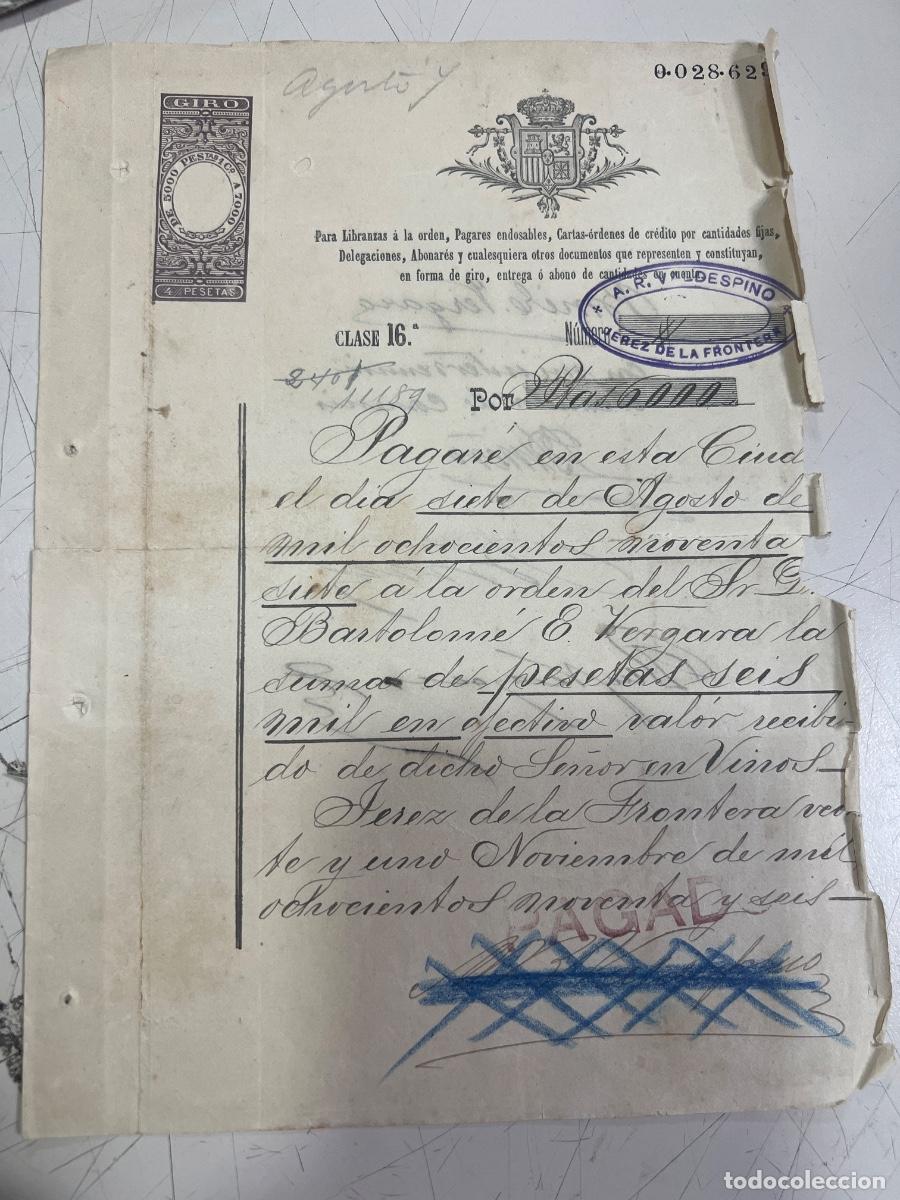 Agosto 7
0.028.629
GIRO
DE 5000 PESTAS 1 Co. A 7000
4 ½ PESETAS
Para Libranzas á la orden, Pagares endosables, Cartas-órdenes de crédito por cantidades fijas,
Delegaciones, Abonarés y cualesquiera otros documentos que representen y constituyan,
en forma de giro, entrega ó abono de cantidades en cuenta
A. R. VALDESPINO
JEREZ DE LA FRONTERA
CLASE 16.ª Número
11189
Por Ptas 6000
Pagaré en esta Ciud
el dia siete de Agosto de
mil ochocientos noventa
siete á la órden del Sr D.
Bartolomé E. Vergara la
suma de pesetas seis
mil en efectivo valór recibi-
do de dicho Señor en Vinos—
Jerez de la Frontera vein
te y uno Noviembre de mil
ochocientos noventa y seis—
PAGADO
todocoleccion